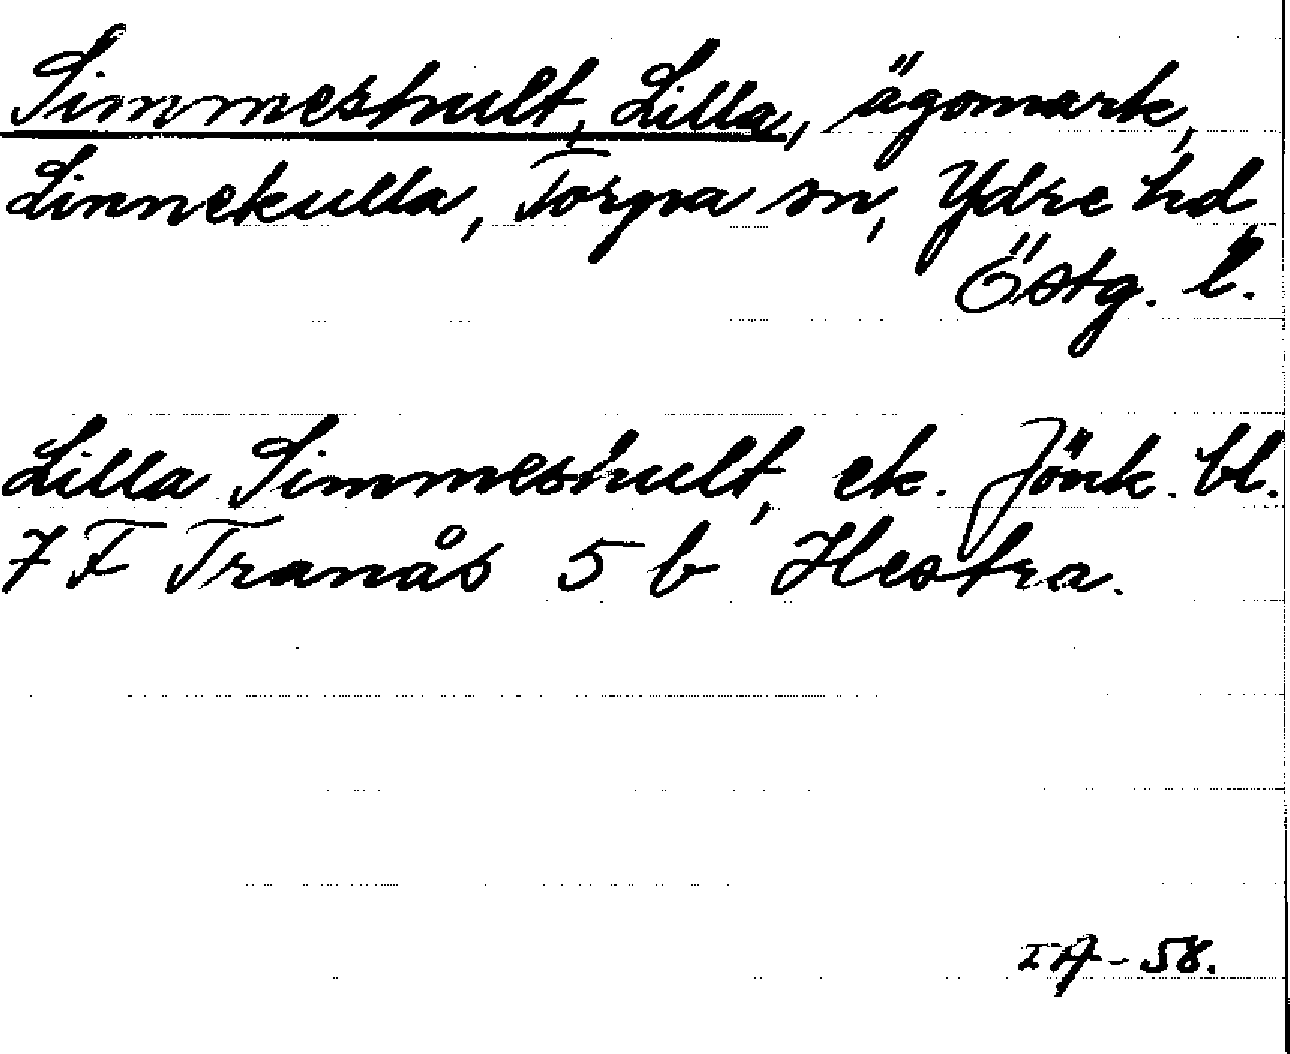 Simmeshult, Lilla, ägomark,
Linnekulla, Torpa sn, Ydre hd,
Östg. l.
Lilla Simmeshult, ek. Jönk. bl.
7 F Tranås 5 b Hestra.
IA-58.